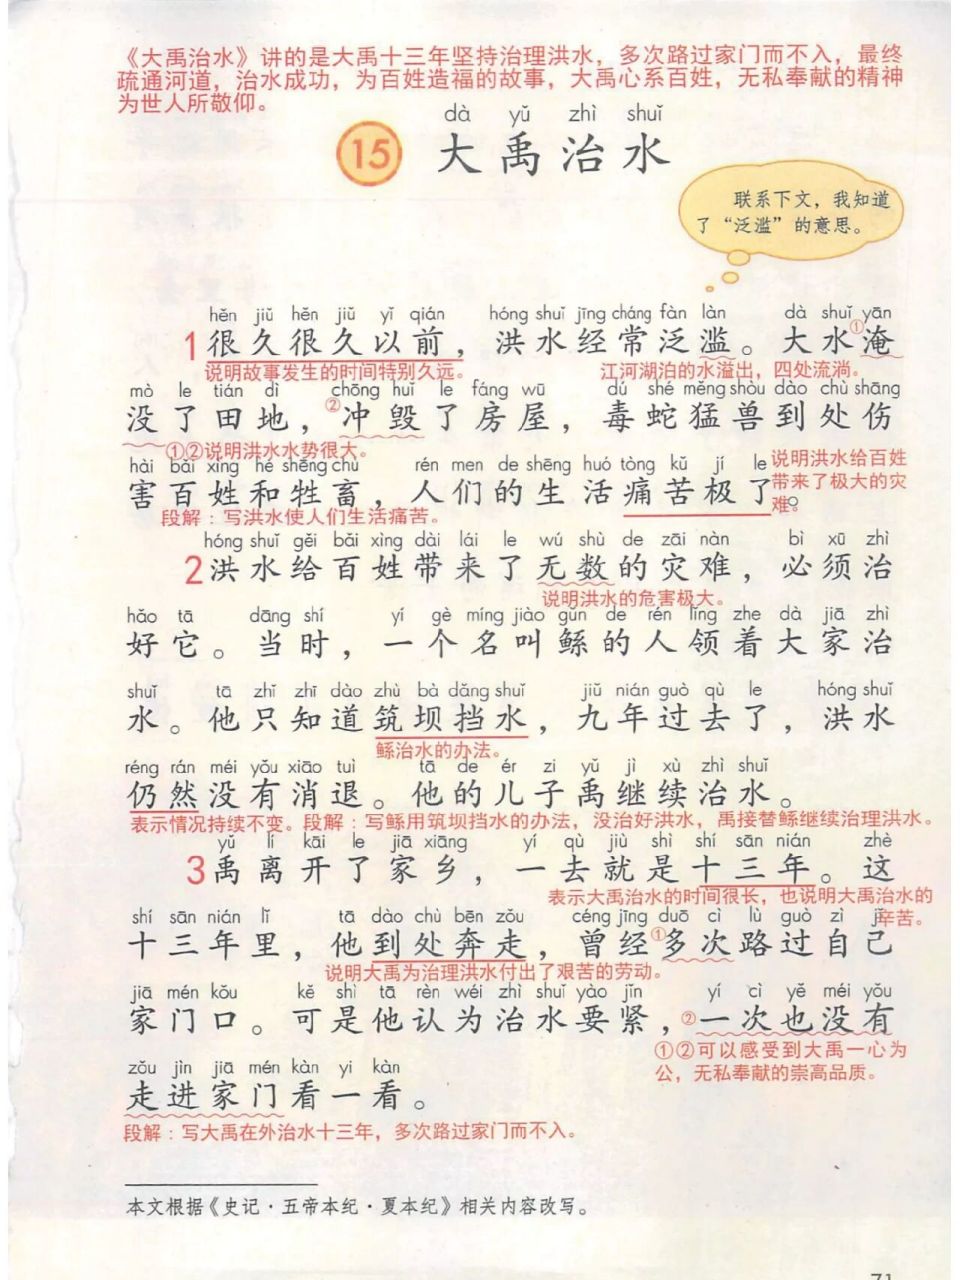 《大禹治水》讲的是大禹十三年坚持治理洪水，多次路过家门而不入，最终
疏通河道，治水成功，为百姓造福的故事，大禹心系百姓，无私奉献的精神
为世人所敬仰。
dà yǔ zhì shuǐ
15 大禹治水
联系下文，我知道
了“泛滥”的意思。
hěn jiǔ hěn jiǔ yǐ qián hóng shuǐ jīng cháng fàn làn dà shuǐ yān
1 很久很久以前，洪水经常泛滥。大水①淹
说明故事发生的时间特别久远。 江河湖泊的水溢出，四处流淌。
mò le tián dì chōng huǐ le fáng wū dú shé měng shòu dào chù shāng
没了田地，②冲毁了房屋，毒蛇猛兽到处伤
①②说明洪水水势很大。
hài bǎi xìng hé shēng chù rén men de shēng huó tòng kǔ jí le
害百姓和牲畜，人们的生活痛苦极了。
说明洪水给百姓
带来了极大的灾
难。
段解：写洪水使人们生活痛苦。
hóng shuǐ gěi bǎi xìng dài lái le wú shù de zāi nàn bì xū zhì
2 洪水给百姓带来了无数的灾难，必须治
说明洪水的危害极大。
hǎo tā dāng shí yí gè míng jiào gǔn de rén lǐng zhe dà jiā zhì
好它。当时，一个名叫鲧的人领着大家治
shuǐ tā zhǐ zhī dào zhù bà dǎng shuǐ jiǔ nián guò qù le hóng shuǐ
水。他只知道筑坝挡水，九年过去了，洪水
鲧治水的办法。
réng rán méi yǒu xiāo tuì tā de ér zi yǔ jì xù zhì shuǐ
仍然没有消退。他的儿子禹继续治水。
表示情况持续不变。段解：写鲧用筑坝挡水的办法，没治好洪水，禹接替鲧继续治理洪水。
yǔ lí kāi le jiā xiāng yí qù jiù shì shí sān nián zhè
3 禹离开了家乡，一去就是十三年。这
表示大禹治水的时间很长，也说明大禹治水的
辛苦。
shí sān nián lǐ tā dào chù bēn zǒu céng jīng duō cì lù guò zì jǐ
十三年里，他到处奔走，曾经①多次路过自己
说明大禹为治理洪水付出了艰苦的劳动。
jiā mén kǒu kě shì tā rèn wéi zhì shuǐ yào jǐn yí cì yě méi yǒu
家门口。可是他认为治水要紧，②一次也没有
①②可以感受到大禹一心为
公，无私奉献的崇高品质。
zǒu jìn jiā mén kàn yi kàn
走进家门看一看。
段解：写大禹在外治水十三年，多次路过家门而不入。
本文根据《史记·五帝本纪·夏本纪》相关内容改写。
71